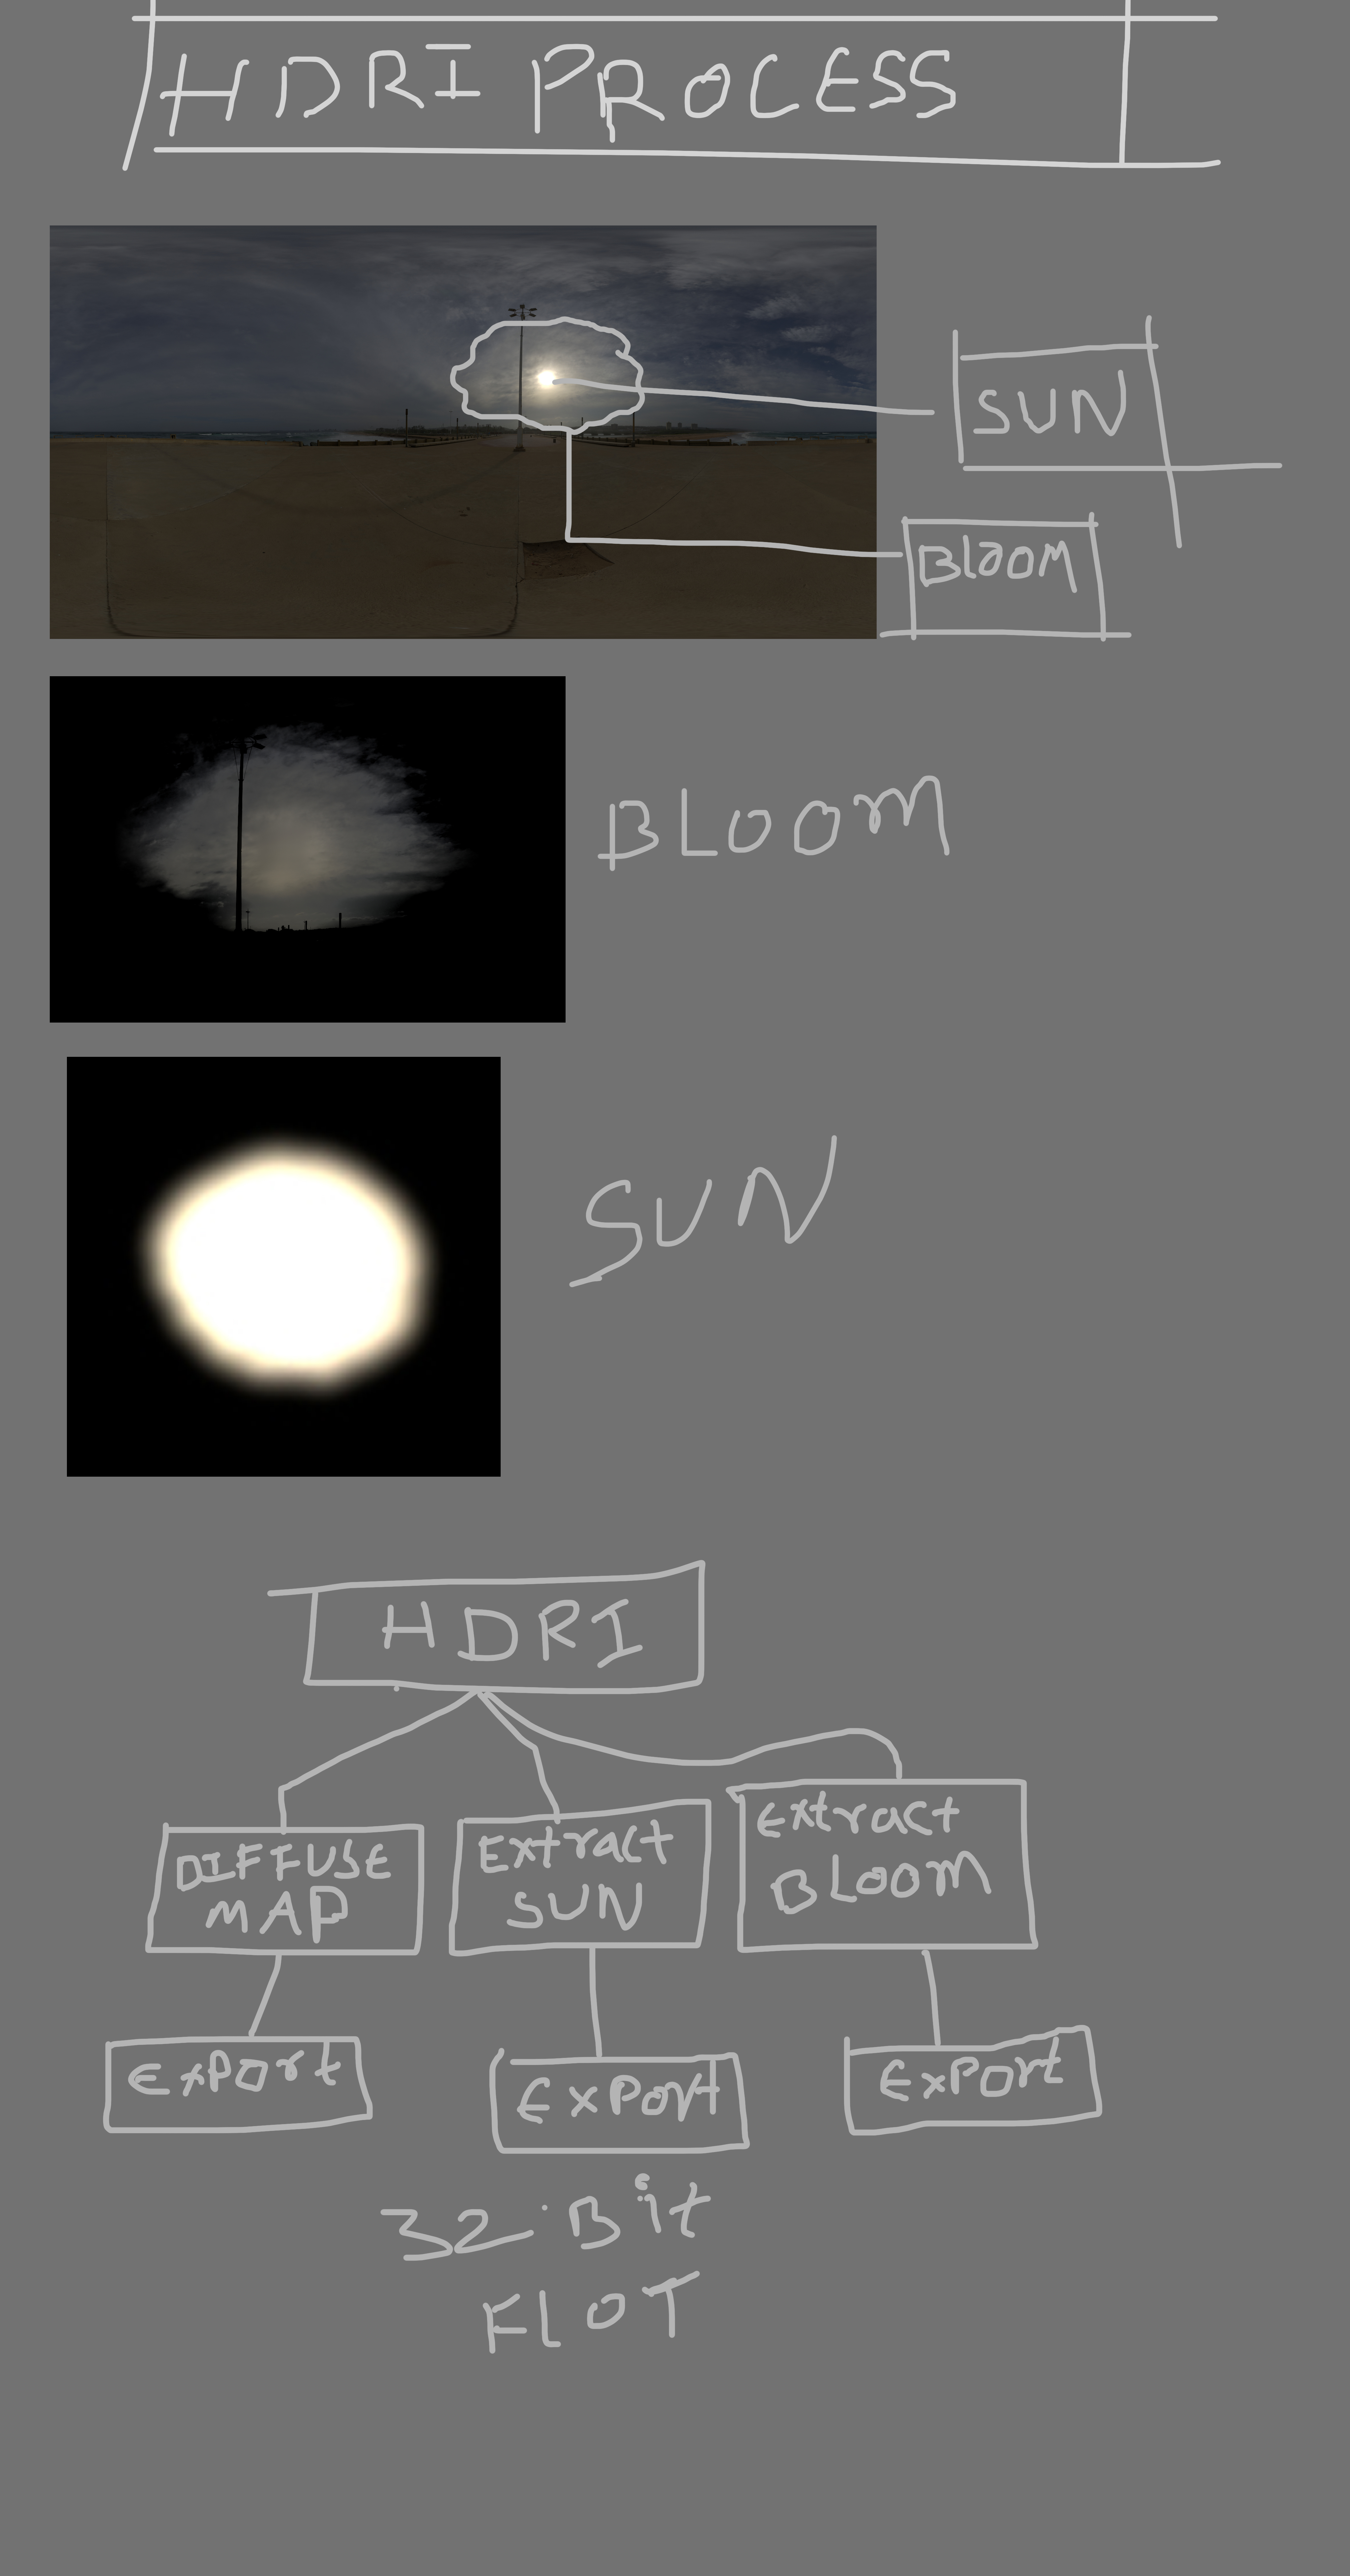 HDRI PROCESS
SUN
BLOOM
BLOOM
SUN
HDRI
DIFFUSE
MAP
Extract
SUN
Extract
BLOOM
Export
Export
Export
32 Bit
FLOT